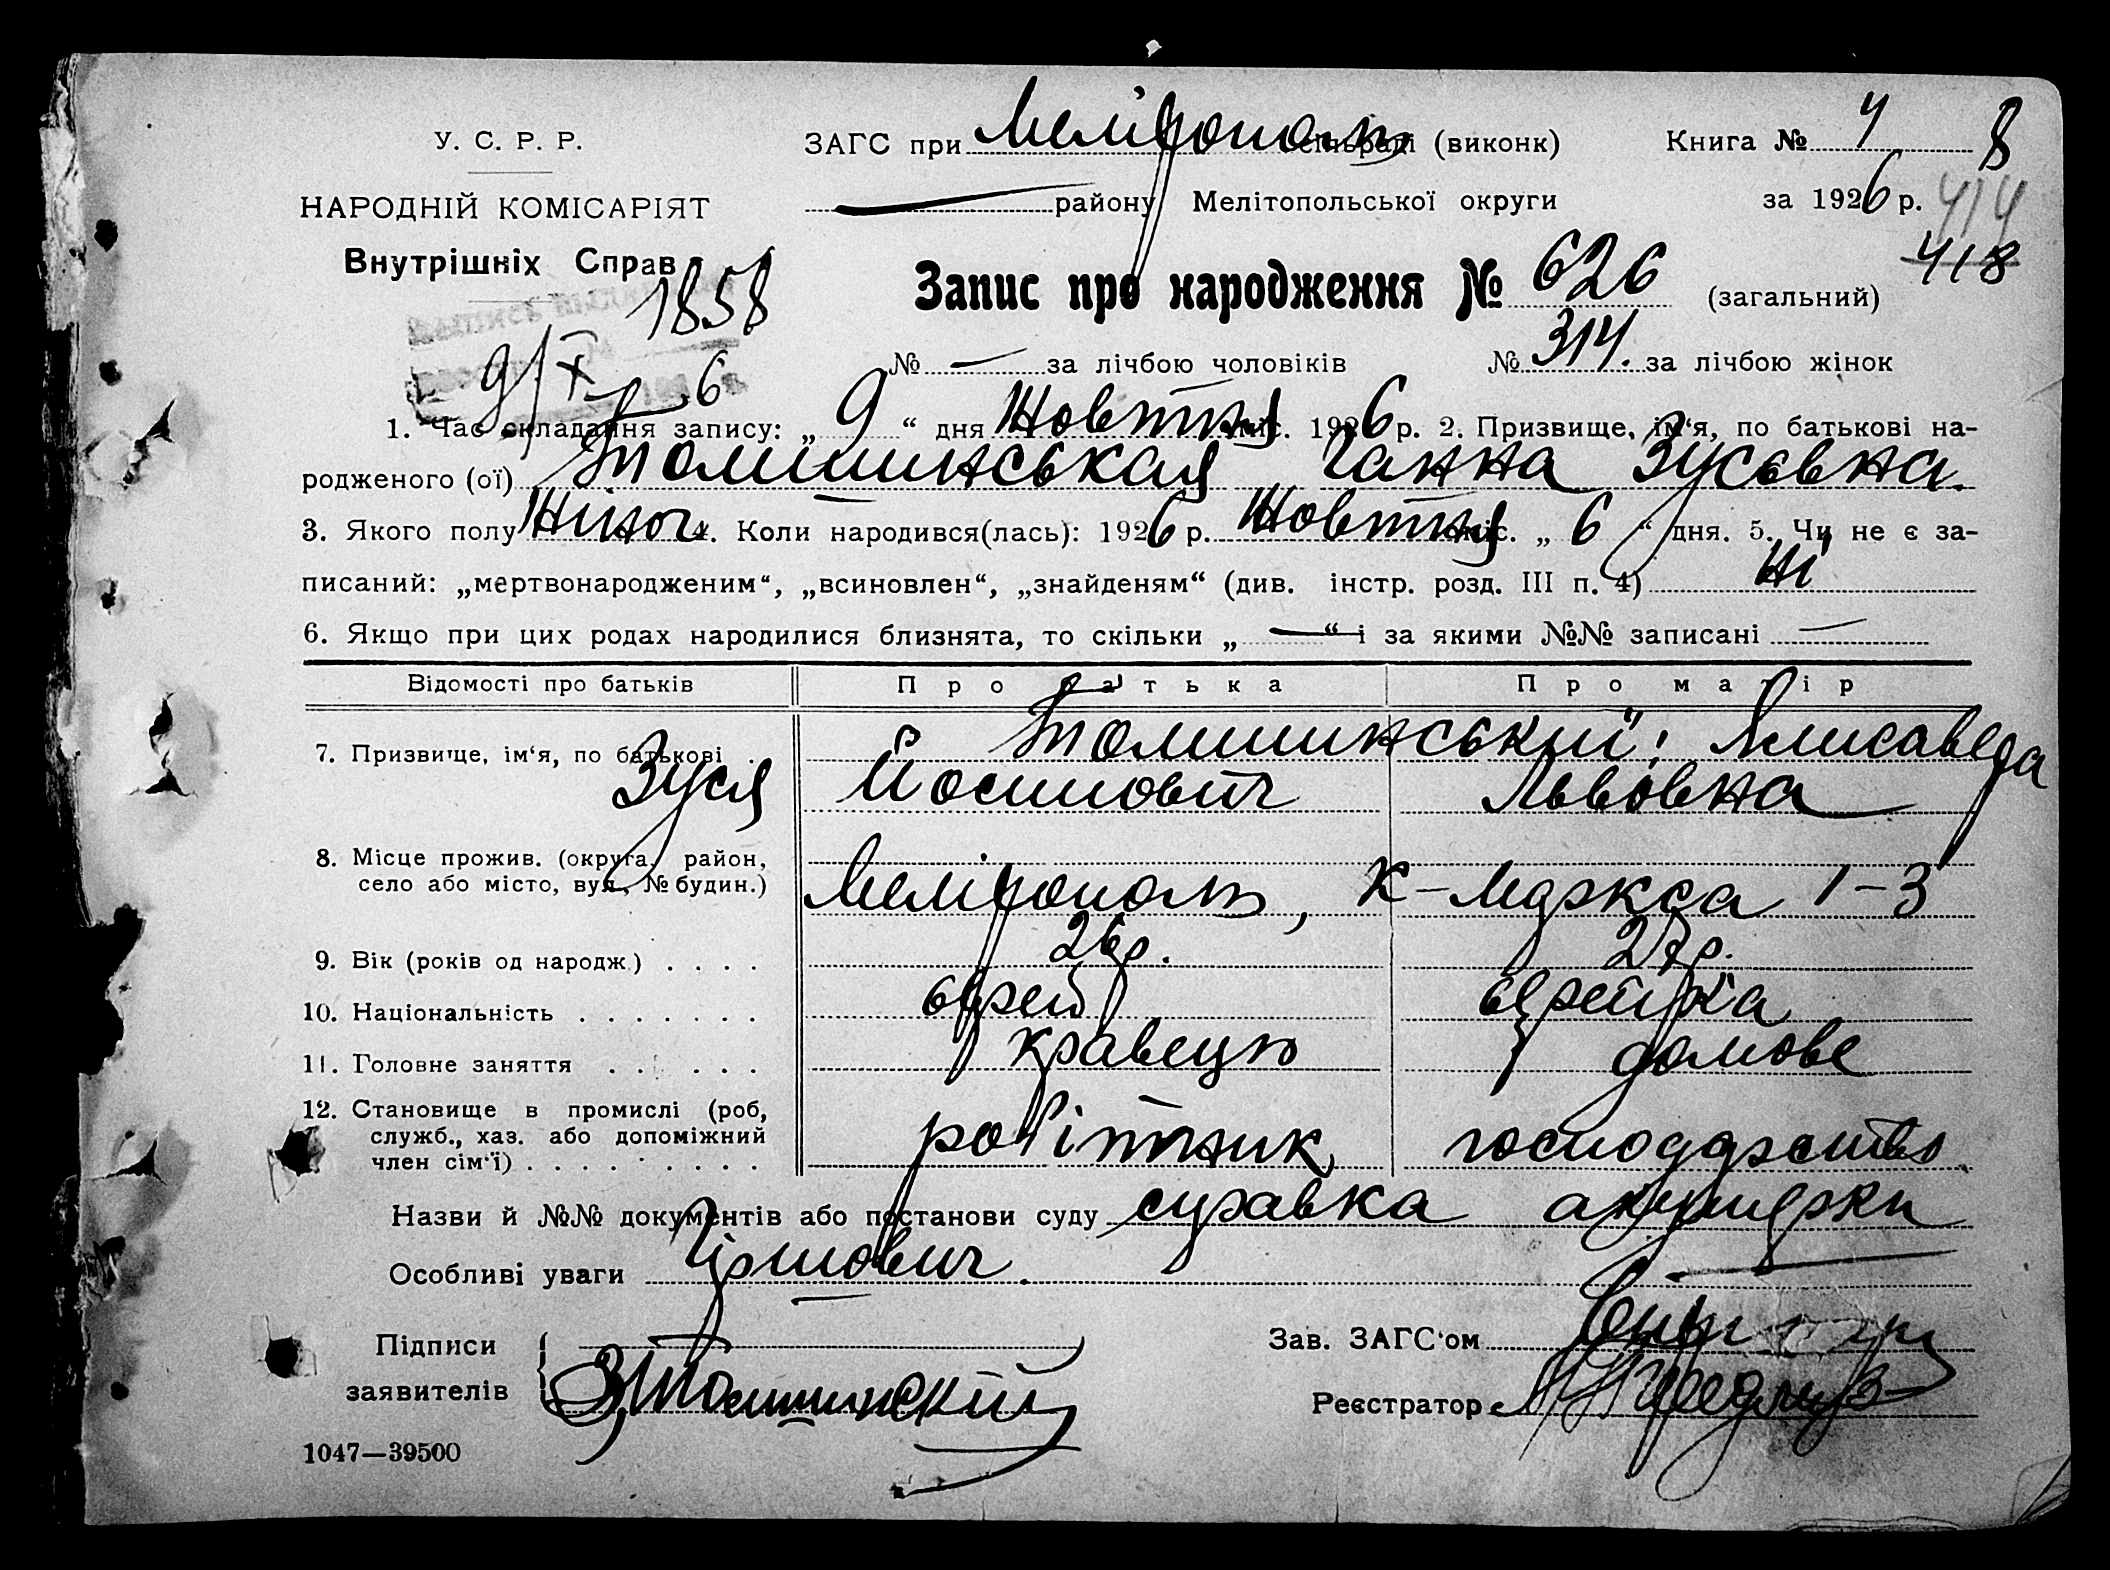 У. С. Р. Р.
ЗАГС при Мелітополь сільраді (виконк)
Книга № 4
8
НАРОДНІЙ КОМІСАРІЯТ
району Мелітопольської округи
за 1926 р.
414
Внутрішніх Справ
418
1858
Запис про народження № 626 (загальний)
9/X 6
№ — за лічбою чоловіків № 314. за лічбою жінок
1. Час складання запису: „ 9 “ дня Жовтня міс. 1926 р. 2. Призвище, ім‘я, по батькові на-
родженого (ої) Толишинськая Ганна Зусєвна.
3. Якого полу Жіноч 4. Коли народився(лась): 1926 р. Жовтня міс. „ 6 “ дня. 5. Чи не є за-
писаний: „мертвонародженим“, „всиновлен“, „знайденям“ (див. інстр. розд. III п. 4) Ні
6. Якщо при цих родах народилися близнята, то скільки „ — “ і за якими №№ записані —
Відомості про батьків Про батька Про матір
7. Призвище, ім‘я, по батькові Толишинський; Єлисаведа
Зуся Йосипович Львовна
8. Місце прожив. (округа, район,
село або місто, вул., № будин.) Мелітополь, К-Маркса 1-3
9. Вік (років од народж.) . . . . 26 р. 27 р.
10. Національність . . . . . . . єврей єврейка
11. Головне заняття . . . . . . кравець домове
12. Становище в промислі (роб,
служб., хаз. або допоміжний робітник господарство
член сім‘ї) . . . . . . . . .
Назви й №№ документів або постанови суду справка акушерки
Особливі уваги Гіршович.
Підписи
Зав. ЗАГС‘ом
заявителів З. Толишинский
Реєстратор
1047—39500